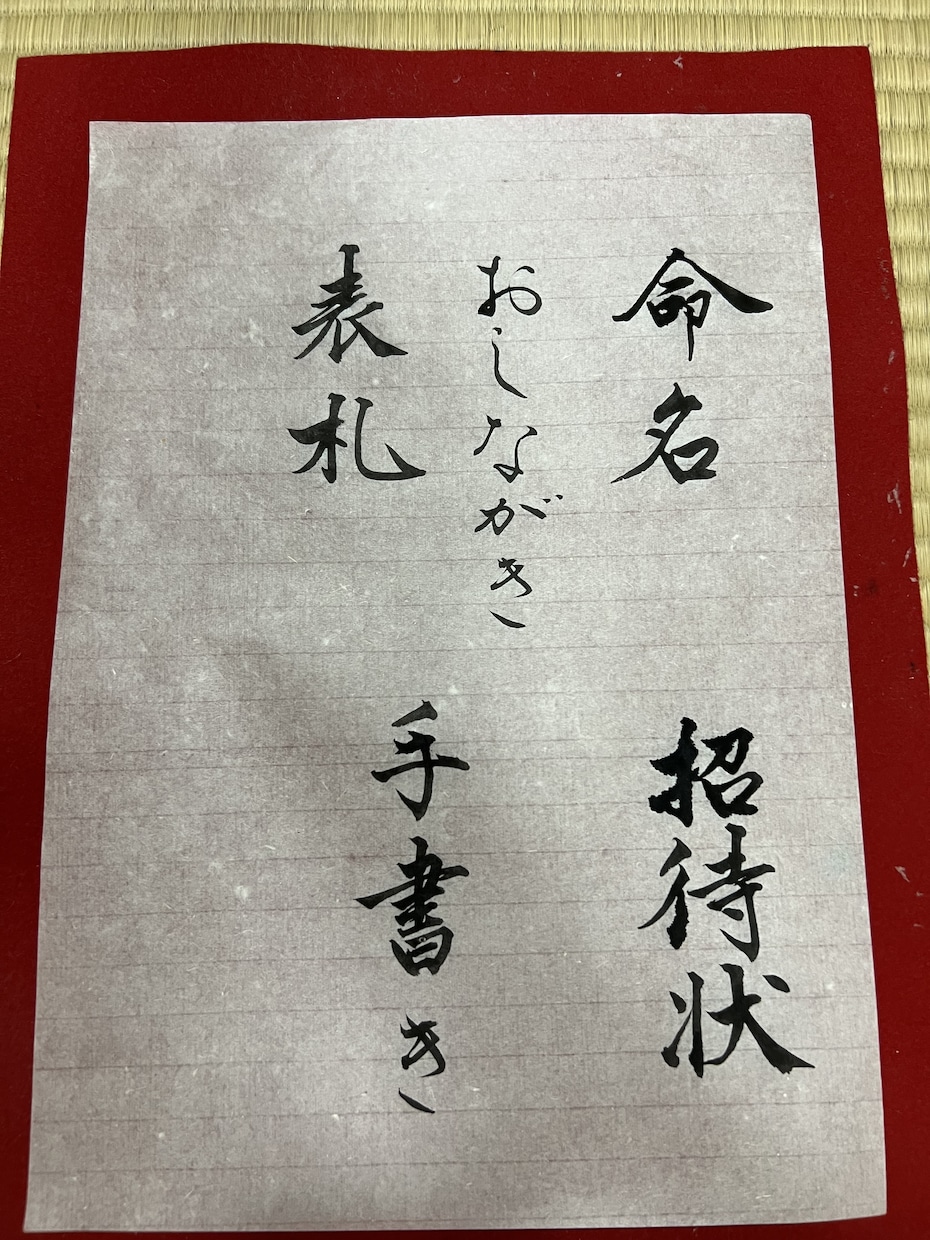 命名
招待状
おしながき
手書き
表札